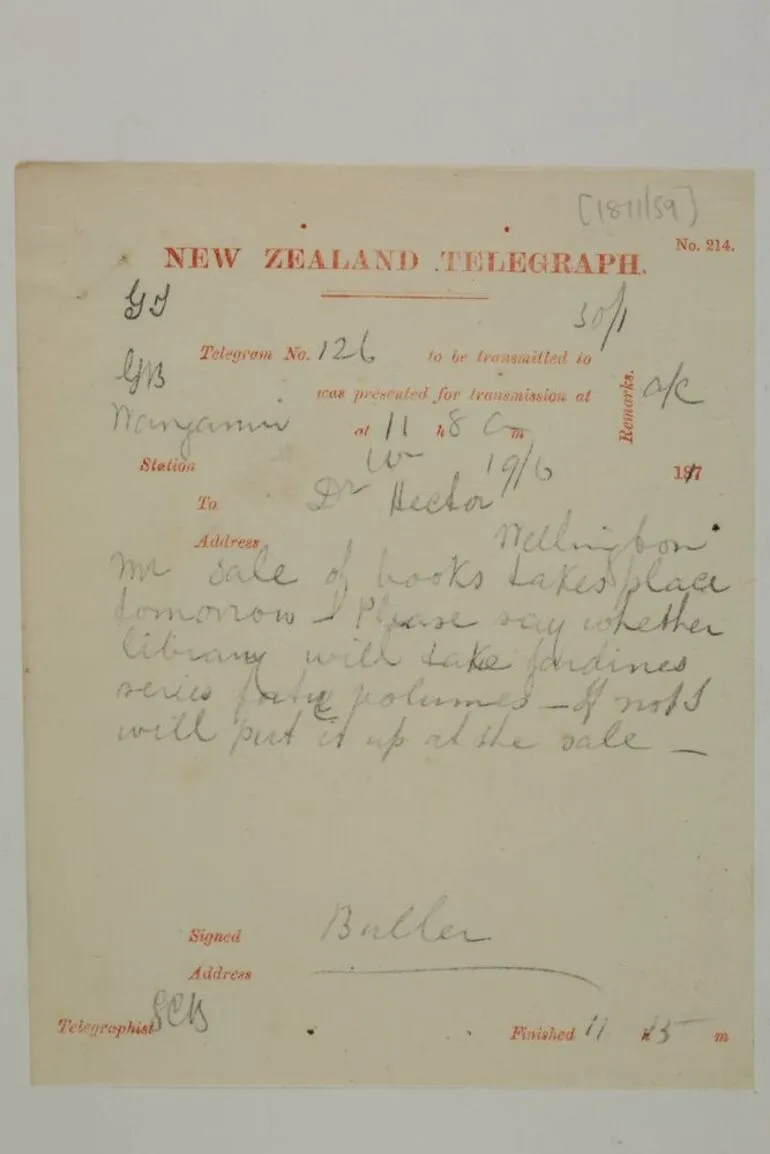 [1871/59]
No. 214.
NEW ZEALAND TELEGRAPH.
GJ
30/1
Telegram No. 126 to be transmitted to
GB
was presented for transmission at
Remarks. a/c
Wanganui
at 11 h 8 a m
Station
Wn 19/6 1871
To Dr Hector
Address Wellington
sale of books takes place
tomorrow Please say whether
library will take Jardines
series forty volumes - If not I
will put it up at the sale -
Signed Buller
Address
Telegraphist
Finished 11 h 15 m